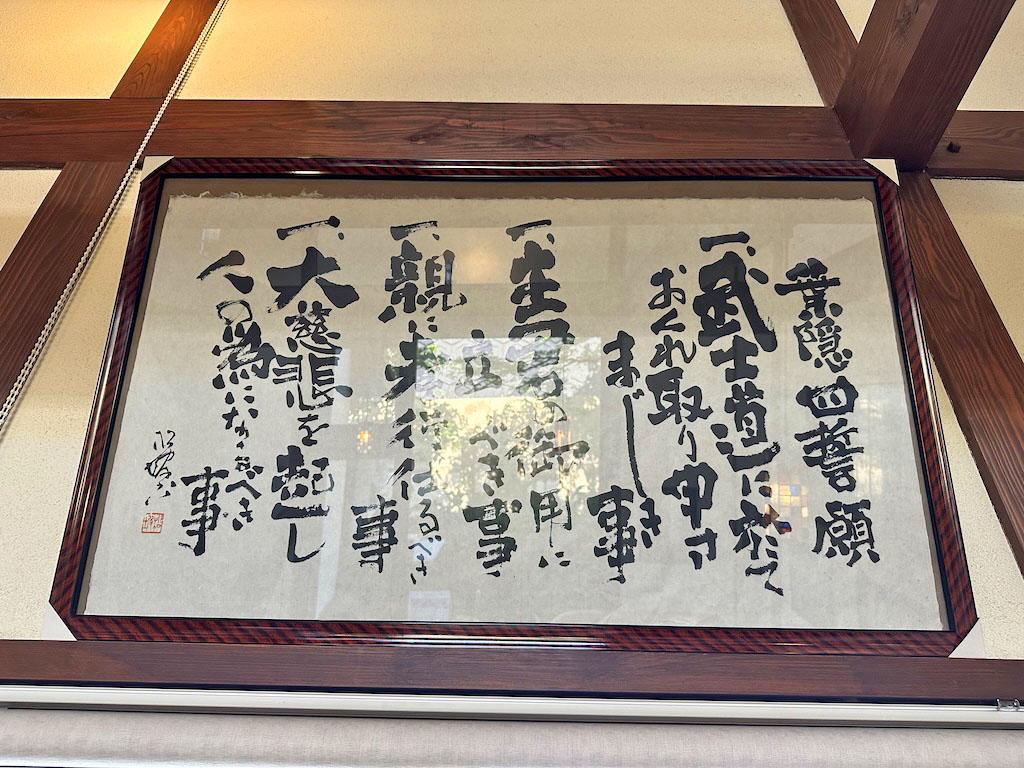 葉隠四誓願
一、武士道に於て
おくれ取り申す
まじき事
一、主君の御用に
立べき事
一、親に孝行仕るべき
事
一、大慈悲を起し
人の為になるべき
事